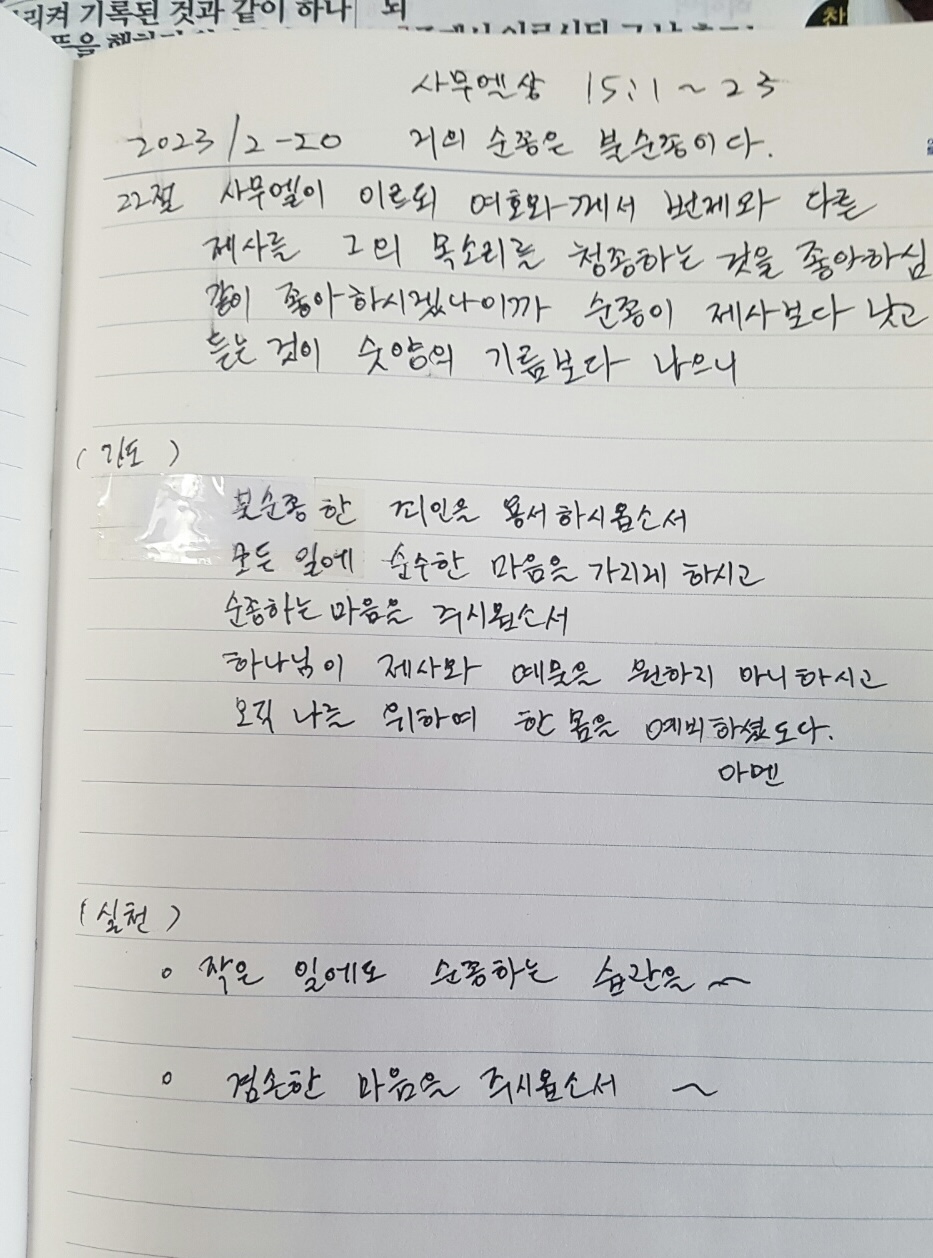 기록된 것과 같이 하나
뇌
찬
사무엘상 15:1~23
2023/2-20 거의 순종은 불순종이다.
22절 사무엘이 이르되 여호와께서 번제와 다른
제사를 그의 목소리를 청종하는 것을 좋아하심
같이 좋아하시겠나이까 순종이 제사보다 낫고
듣는 것이 숫양의 기름보다 나으니
(기도)
불순종한 죄인을 용서하시옵소서
모든 일에 순수한 마음을 가리게 하시고
순종하는 마음을 주시옵소서
하나님이 제사와 예물을 원하지 아니하시고
오직 나를 위하여 한 몸을 예비하셨도다.
아멘
(실천)
o 작은 일에도 순종하는 습관을 ~
o 겸손한 마음을 주시옵소서 ~